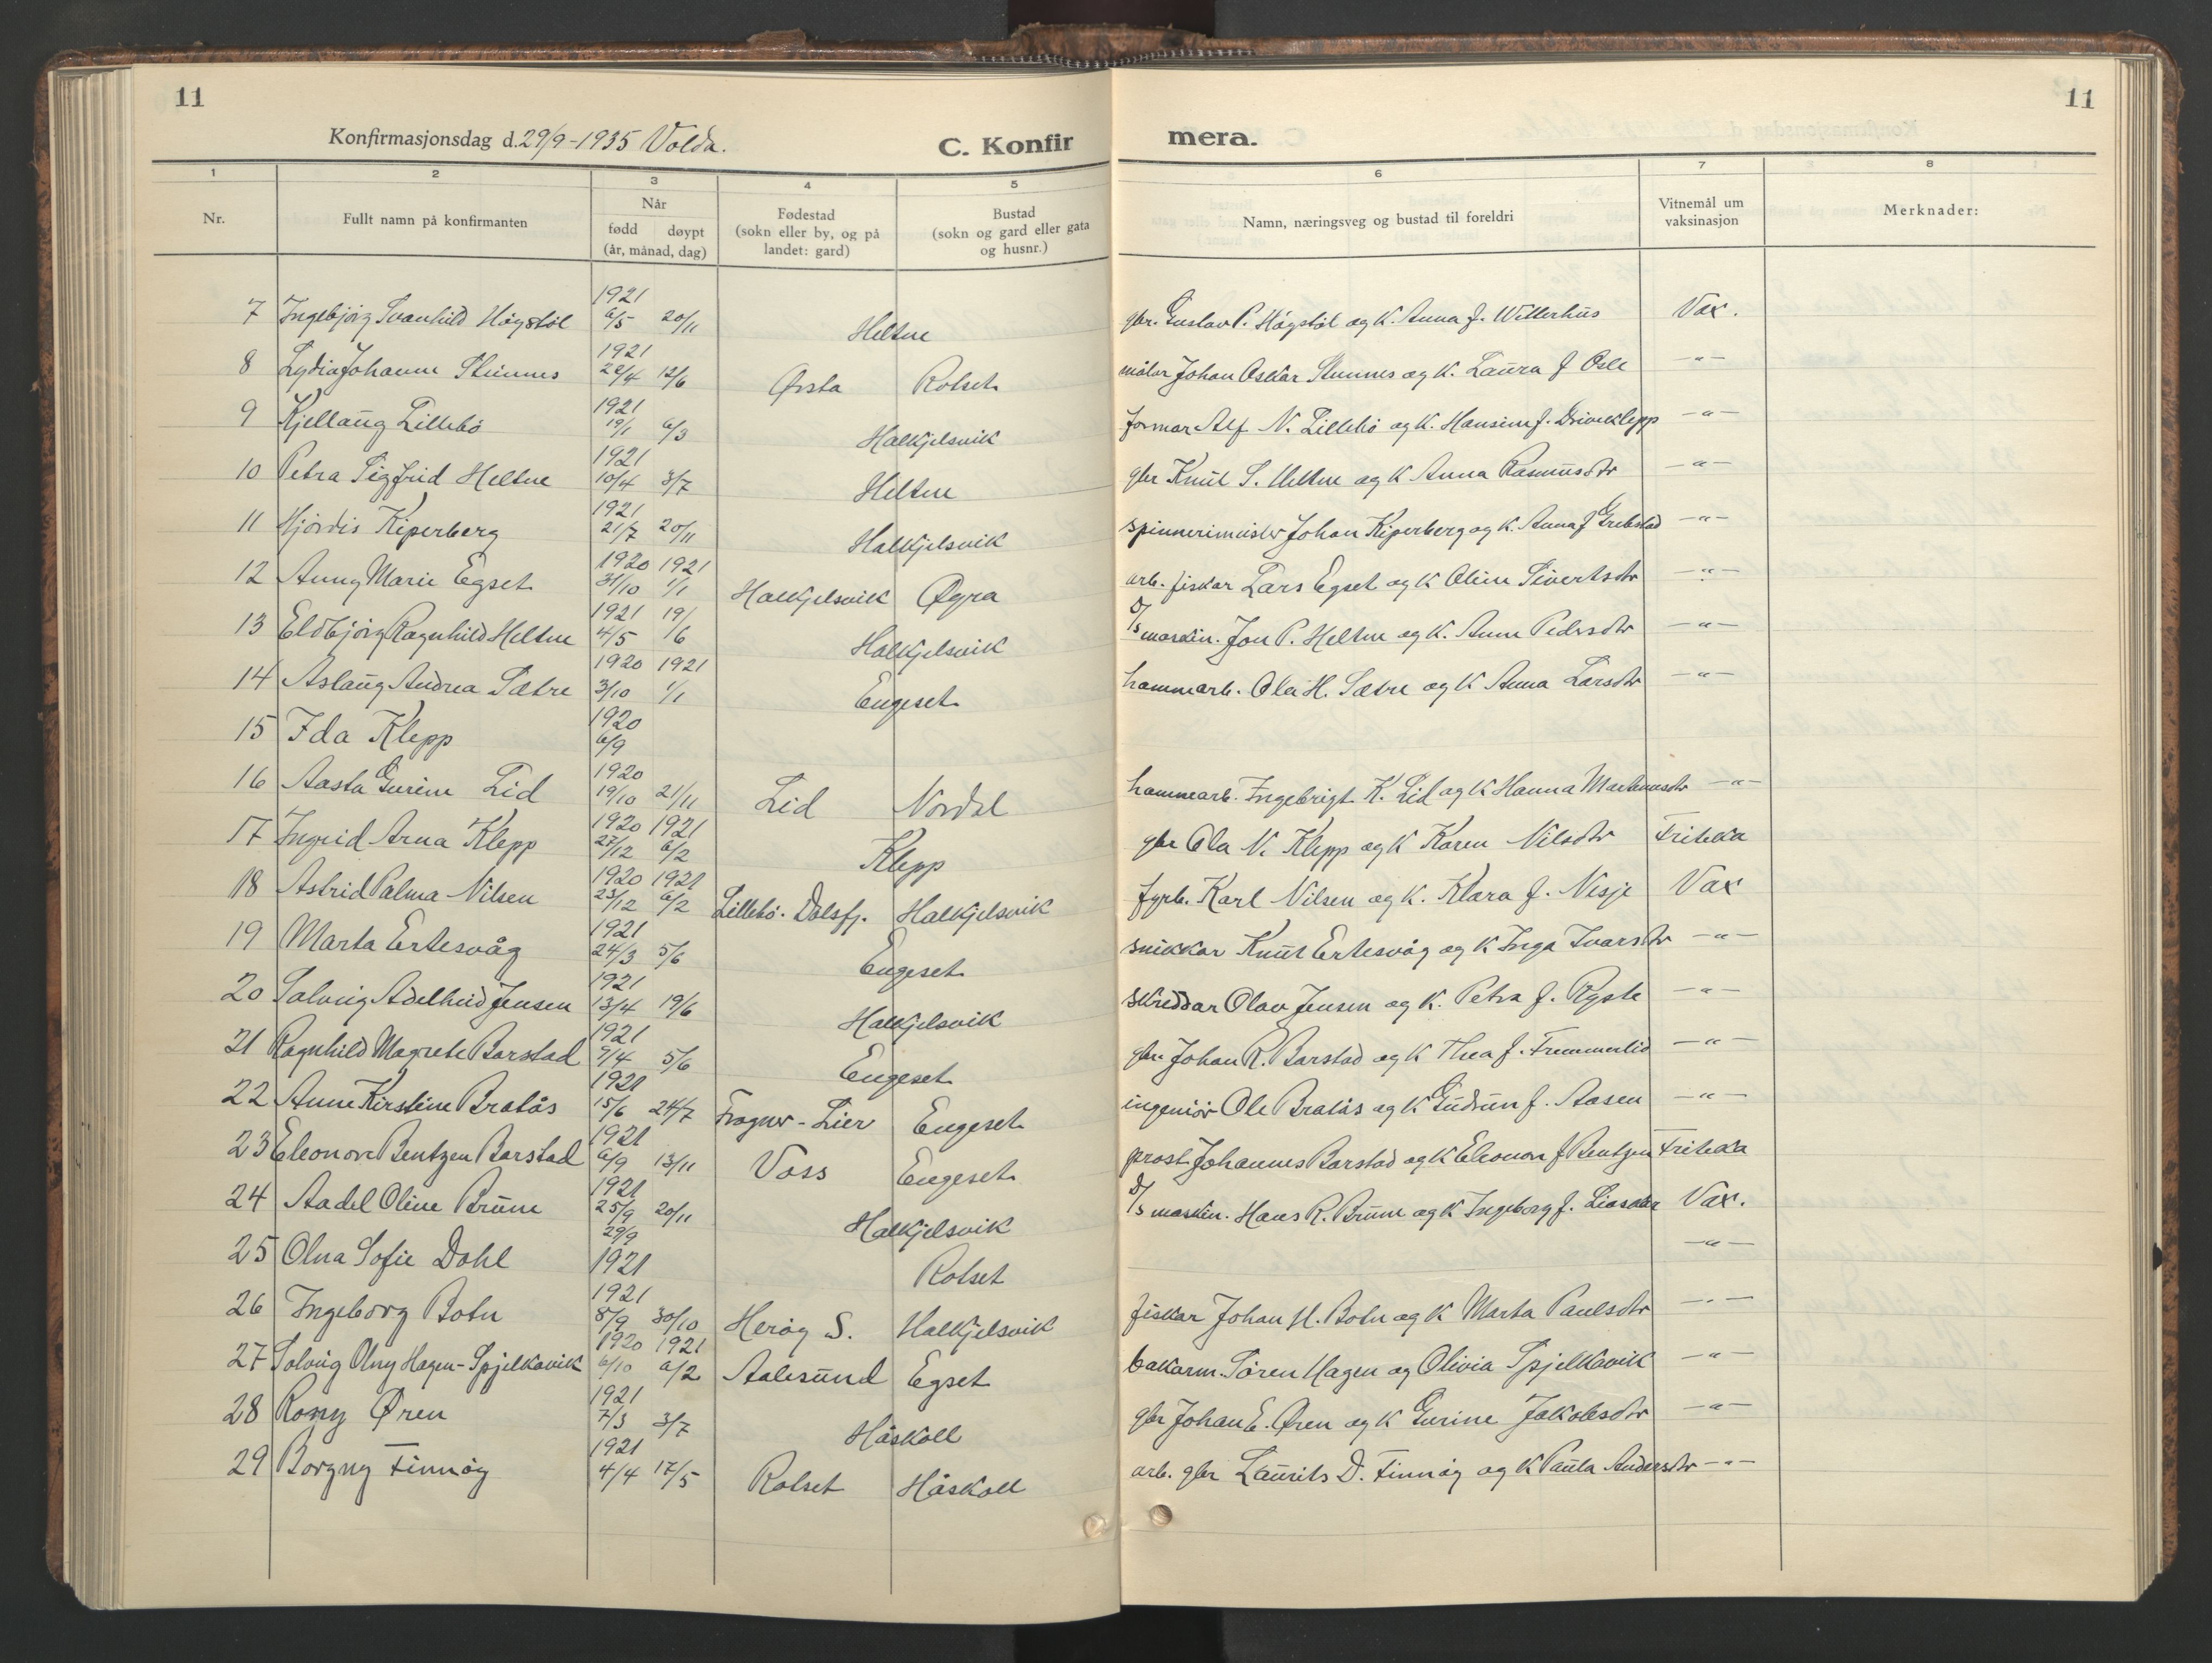 11
11
Konfirmasjonsdag d. 29/9-1935 Volda.
C. Konfirmera.
1 2 3 4 5 6 7 8
Nr.
Fullt namn på konfirmanten
Når
fødd døypt
(år, månad, dag)
Fødestad
(sokn eller by, og på
landet: gard)
Bustad
(sokn og gard eller gata
og husnr.)
Namn, næringsveg og bustad til foreldri
Vitnemål um
vaksinasjon
Merknader:
7 Ingebjörg Svanhild Högstöl 1921 6/5 20/11 Heltne gbr. Gustav P. Högstöl og K. Anna f. Witterhus Vax.
8 Lydia Johanne Steinnes 1921 20/4 12/6 Ørsta Rotset målar Johan Oskar Steinnes og K. Laura f Osle -"-
9 Kjellaug Lillebö 1921 19/1 6/3 Halkjelsvik formar Alf N. Lillebö og K. Hansine f. Driveklepp -"-
10 Petra Sigfrid Heltne 1921 10/4 3/7 Heltne gbr Knut S. Heltne og K Anna Rasmusdtr -"-
11 Hjördis Kiperberg 1921 21/7 20/11 Halkjelsvik spinnerimeister Johan Kiperberg og K. Anna f Grebstad -"-
12 Anny Marie Egset 1920 1921 31/10 1/1 Halkjelsvik Øyra arb. fiskar Lars Egset og K Oline Sivertsdtr -"-
13 Eldbjörg Ragnhild Heltne 1921 19/ 4/5 16 Halkjelsvik D/s maskin. Jon P. Heltne og K. Anne Pedersdtr -"-
14 Aslaug Andrea Sætre 1920 1921 3/10 1/1 Engeset hammarb. Olai H. Sætre og K Anna Larsdtr -"-
15 Ida Klepp 1920 6/9
16 Aasta Gurine Lid 1920 19/10 21/11 Lid Nordal hammarb. Ingebrigt K. Lid og K Hanna Martinusdtr -"-
17 Ingrid Arna Klepp 1920 1921 27/12 6/2 Klepp gbr Ola N. Klepp og K Karen Nilsdtr Friteken
18 Astrid Palma Nilsen 1920 1921 23/12 6/2 Lillebö. Dalsfj. Halkjelsvik fyrb. Karl Nilsen og K. Klara f. Nesje Vax
19 Marta Ertesvåg 1921 24/3 5/6 Engeset snikkar Knut Ertesvåg og K Inga Ivarsdtr -"-
20 Solveig Adelheid Jensen 1921 13/4 19/6 Halkjelsvik skreddar Olav Jensen og K. Petra f. Ryste -"-
21 Ragnhild Magrete Barstad 1921 9/4 5/6 Engeset gbr Johan R. Barstad og K Thea f. Fremmerlid -"-
22 Anne Kirstine Bratås 1921 15/6 24/7 Frogner - Lier Engeset ingeniör Ole Bratås og K Gudrun f. Aasen -"-
23 Eleonore Bentzen Barstad 1921 6/9 13/11 Voss Engeset prost Johannes Barstad og K Eleonore f Bentzen
24 Aadel Oline Brune 1921 25/9 20/11 Halkjelsvik D/s maskin. Hans R. Brune og K Ingeborg f. Vax.
25 Olna Sofie Dahl 29/9 1921 Rotset -"-
26 Ingeborg Botn 1921 8/9 30/10 Heröy S. Halkjelsvik fiskar Johan H. Botn og K Marta Paulsdtr -"-
27 Solveig Olny Hagen-Spjelkavik 1920 1921 6/10 6/2 Aalesund Egset bakarm. Sören Hagen og Olivia Spjelkavik -"-
28 Romy Øren 1921 7/3 3/7 Håskoll gbr Johan E. Øren og K Gurine Jakobsdtr -"-
29 Borgny Finnöy 1921 4/4 17/5 Rotset Håskoll arb. gbr Laurits D. Finnöy og K Paula Andersdtr -"-